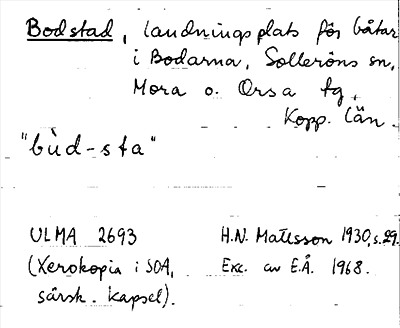 Bodstad, landningsplats för båtar
i Bodarna, Solleröns sn,
Mora o. Orsa tg,
Kopp. län.
"bùd-sta"
ULMA 2693 H.N. Matsson 1930, s. 29.
(Xerokopia i SOA, Exc. av E.Å. 1968.
särsk. kapsel).